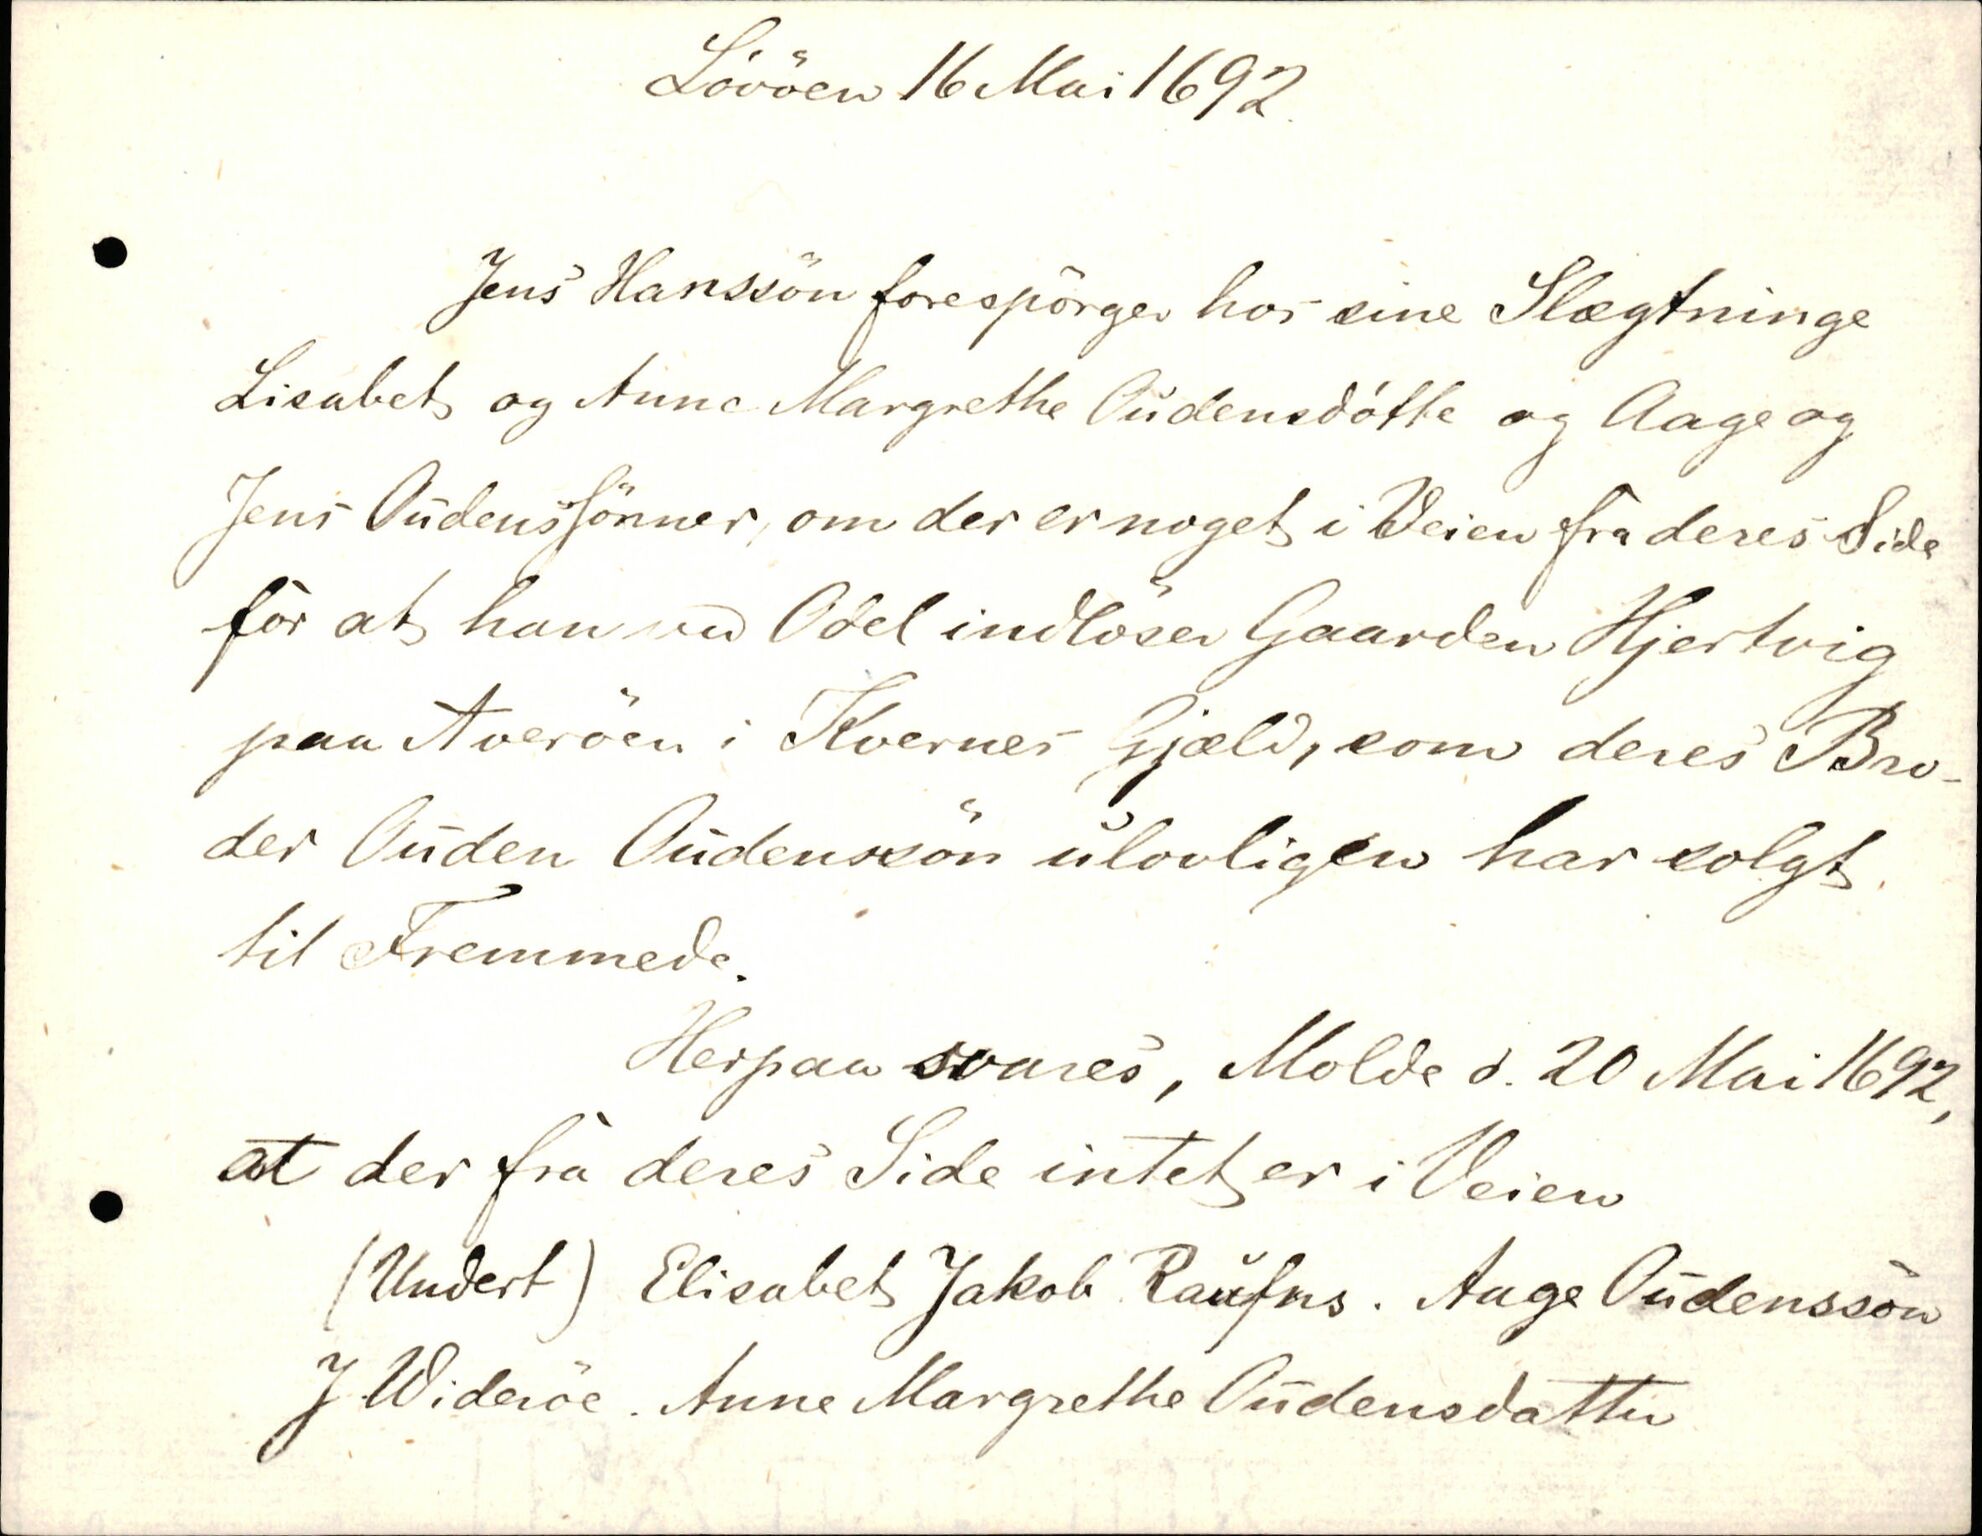 Lövöen 16 Mai 1692.
Jens Hanssön forespörger hos sine Slægtninge
Lisabet og Anne Margrethe Oudensdötte og Aage og
Jens Oudenssönner, om der er noget i Veien fra deres Side
for at han ved Odel indlöser Gaarden Hjertvig
paa Averöen i Kvernes Gjæld, som deres Bro-
der Ouden Oudenssön ulovligen har solgt
til Fremmede.
Herpaa svares, Molde d. 20 Mai 1692,
at der fra deres Side intet er i Veien
(Undert) Elisabet Jakob Raufns. Aage Oudenssön
J Wideröe. Anne Margrethe Oudensdatter